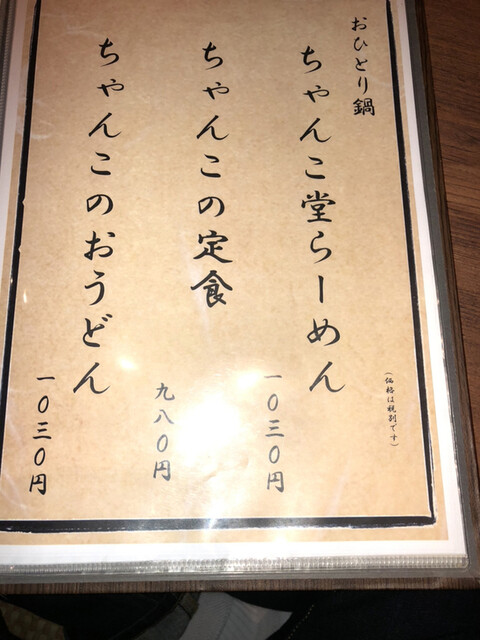 おひとり鍋
ちゃんこ堂らーめん
一〇三〇円
ちゃんこの定食
九八〇円
ちゃんこのおうどん
一〇三〇円
(価格は税別です)